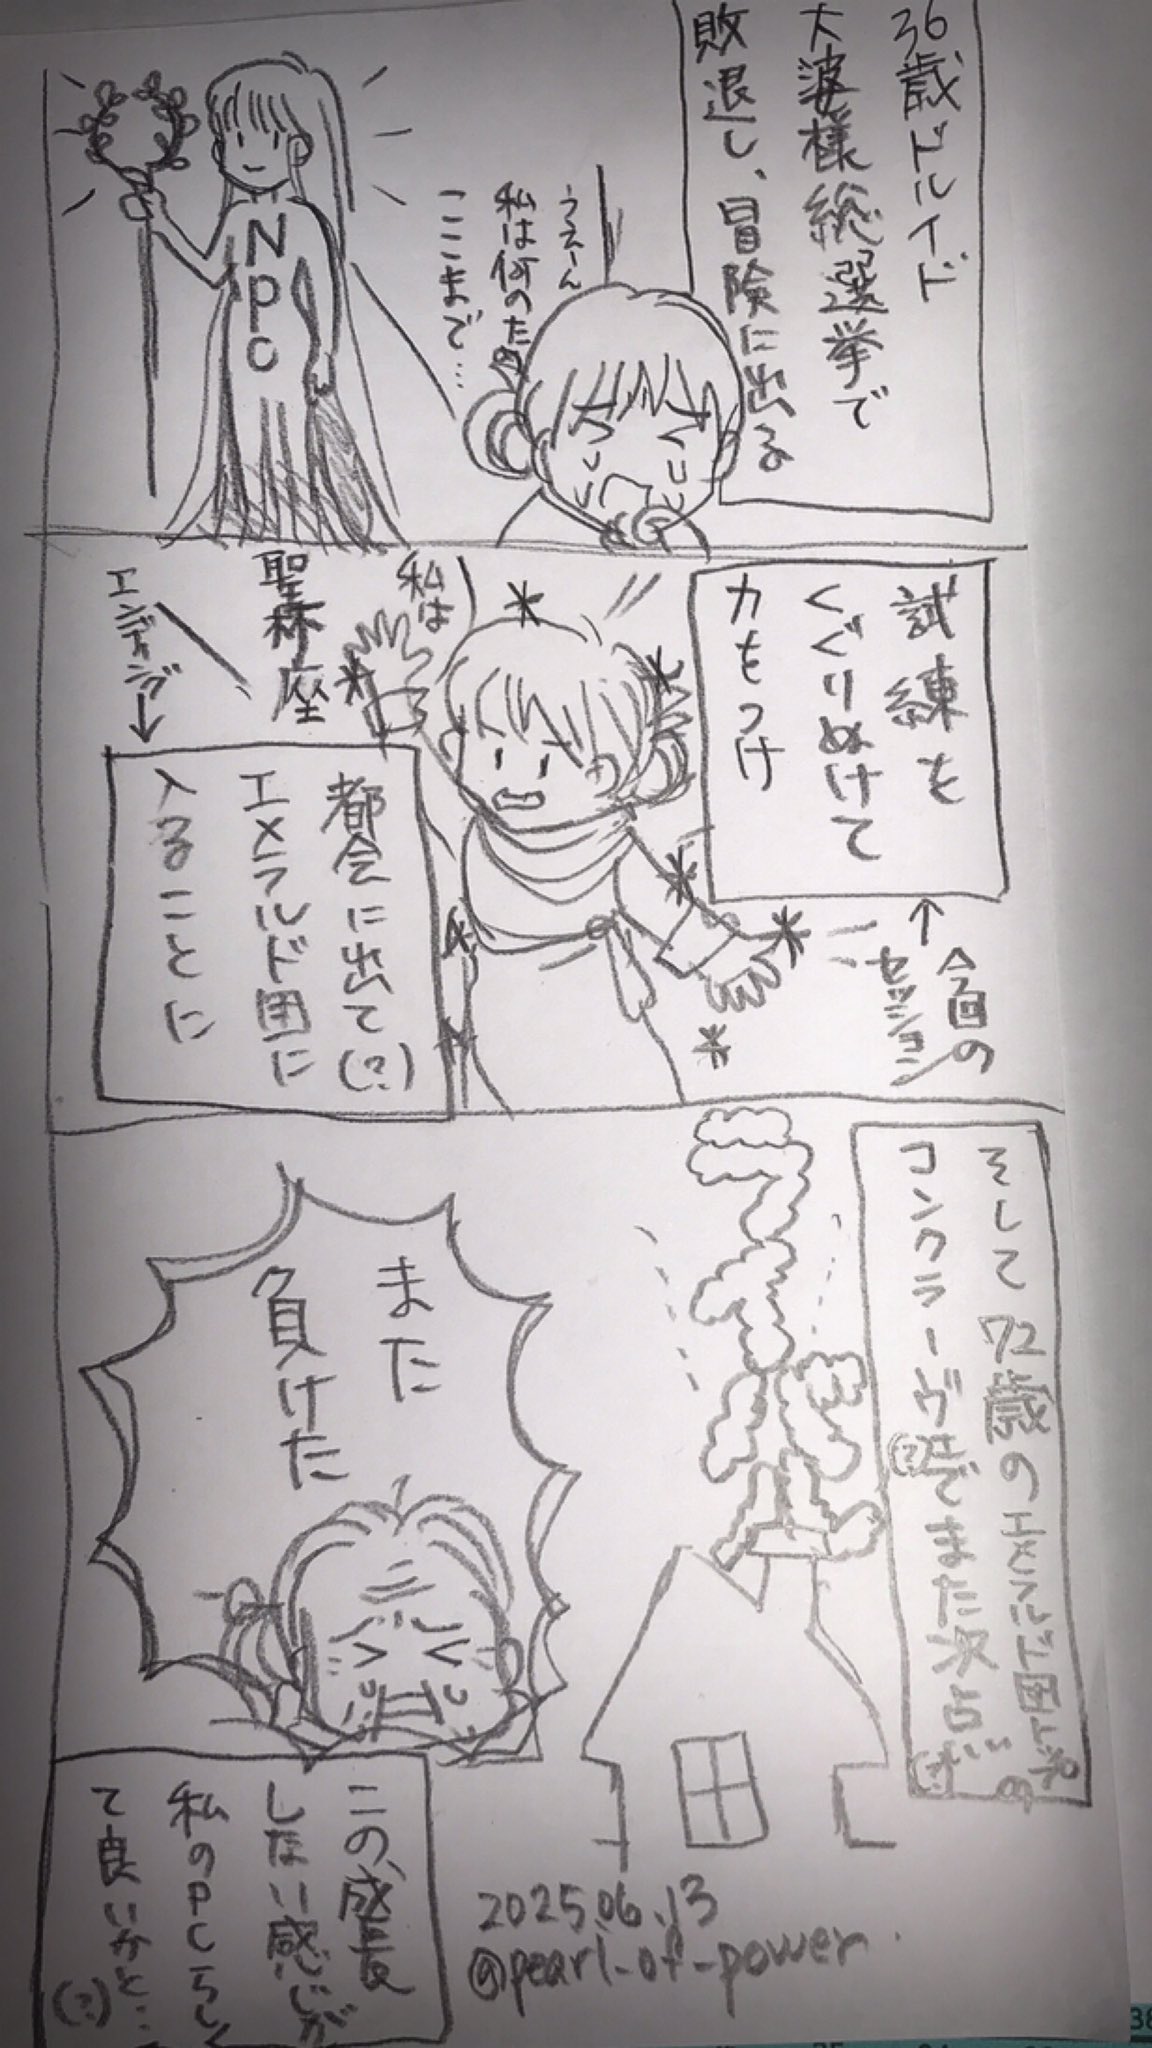 36歳ドルイド
大婆様総選挙で
敗退し、冒険に出る
うえーん
私は何のため
ここまで…
NPC
試練を
くぐりぬけて
力もつけ
↑今回の
セッション
私は
聖杯座
エンディング↓
都会に出て(?)
エメラルド団に
入ることに
そして72歳のエメラルド団
コンクラーヴ(?)でまた次点
また
負けた
この、成長
しない感じが
私のPCらしく
て良いかと…
(?)
2025.06.13
@pearl-of-power